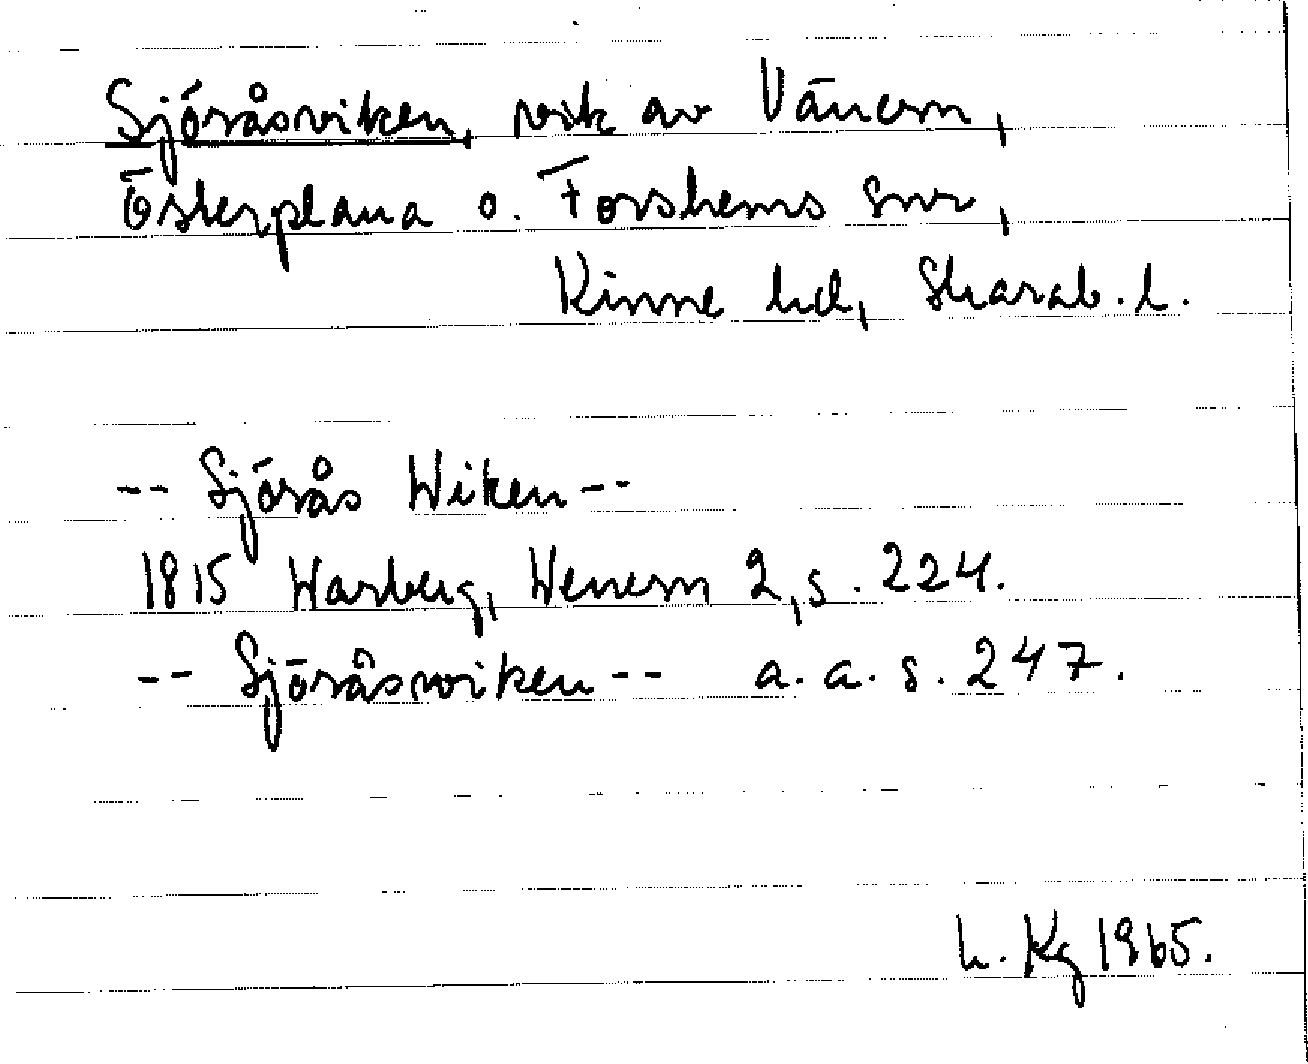 Sjöråsviken, vik av Vänern,
Österplana o. Forshems snr,
Kinne hd, Skarab. l.
-- Sjörås Wiken --
1815 Warberg, Wenern 2, s. 224.
-- Sjöråsviken -- a. a. s. 247.
L. Kg 1965.